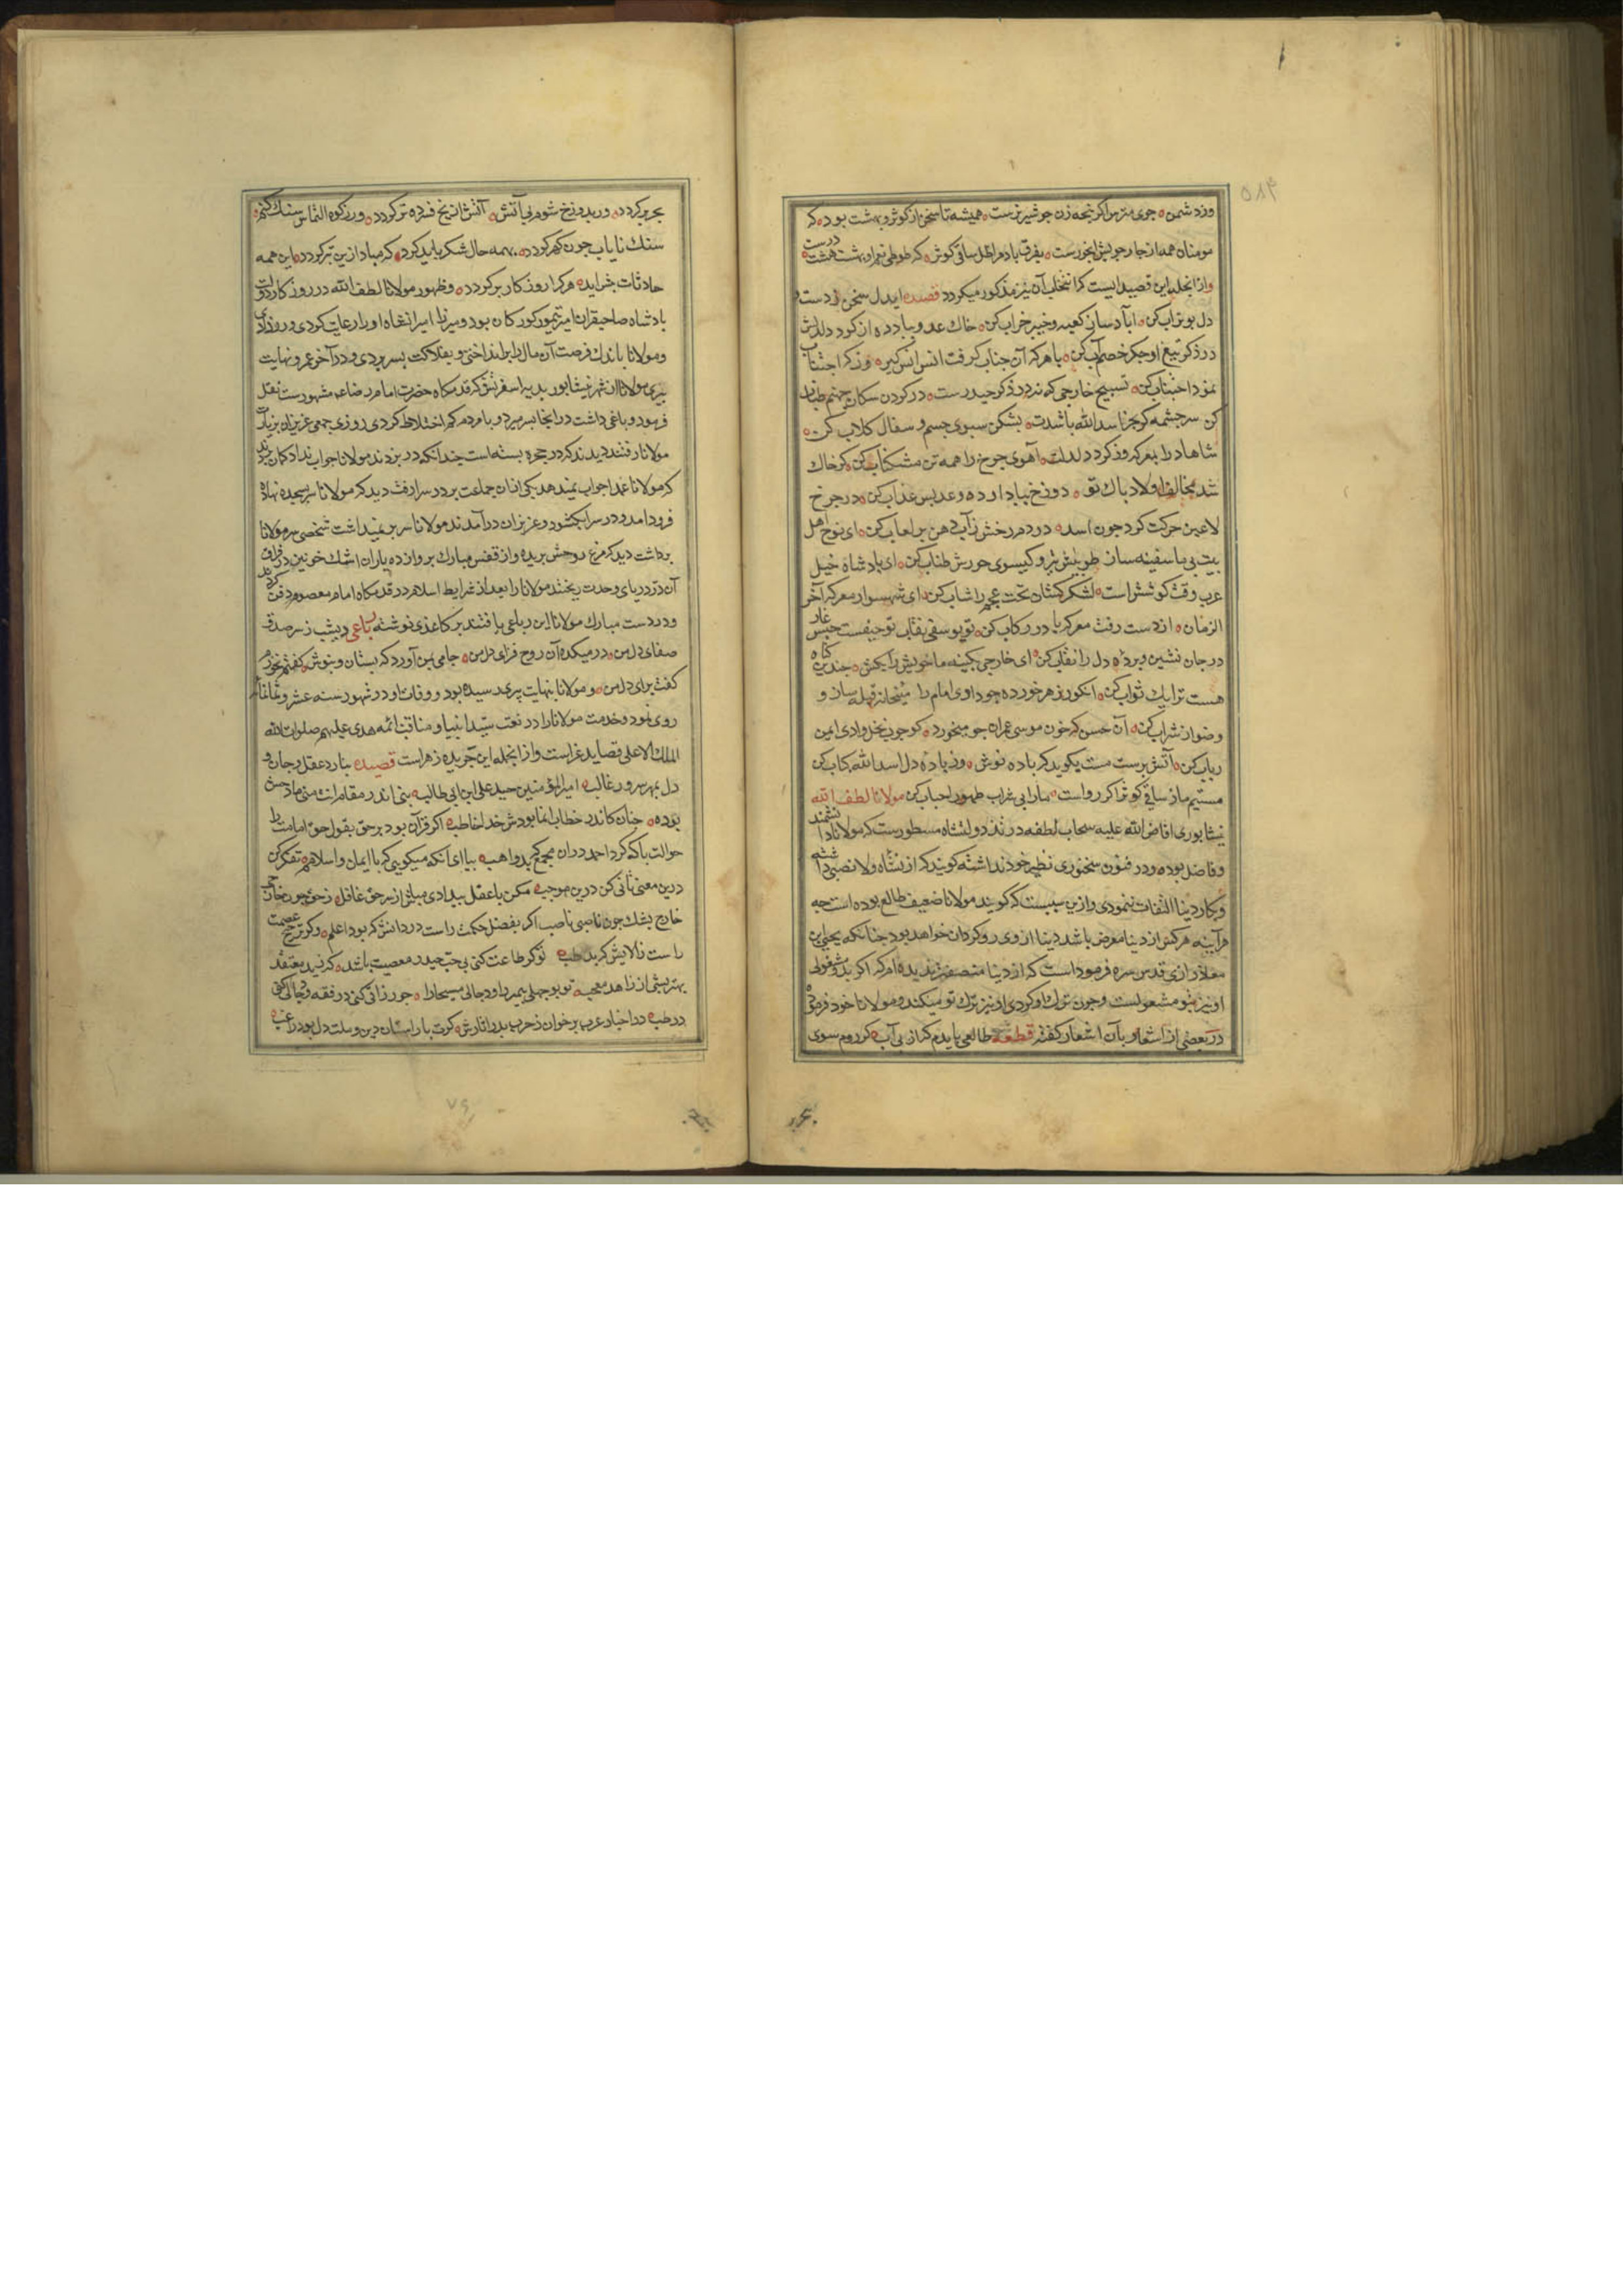 وزد شمن جوی مترس اکر نجه زن جو شیر نرست همیشه تا سخن از کوثر و بهشت بود که
مومنان همه از جار جویش انجورست بفرق باد مرا ظل ساقی کوثر که طوطی نعم او بهشت هشت درست
وازانجمله این قصیده ایست که انتخاب آن نیز مذکور میکردد قصیده ایدل سخن ز دست و
دل بوتراب کن آباد سان کعبه و خیبر خراب کن خاک عدو بباد ده از کرد دلدلش
در ذکر تیغ او جکر خصم آب کن با هر که آن جناب کرفت انس انس کیر وز که اجتناب
نمود اجتناب کن تسبیح خارجی که نه در ذکر حیدرست در کردن سکان جهنم طناب
کن سرجشمه کو بجز اسد الله باشدت بشکن سبوی جسم و سفال کلاب کن
شاها درا بمعرکه وز کرد دلدلت آهوی جرخ را همه تن مشکناب کن کر خاک
شد مخالف اولاد باک تو دوزخ بباد ارده و عدیس عذاب کن در جرخ
لاعبن حرکت کرد جون اسد در دم رخش ز آب دهن بر لعاب کن ای نوح اهل
بیت بیا سفینه ساز طوبیش تیر و کیسوی حورش طناب کن ای بادشاه خیل
عرب وقت کوشش است لشکر کشان تخت عجم را شتاب کن ای شهسوار معرکه آخر
الزمان از دست رفت معرکه با در رکاب کن تو یوسفی نقاب تو حیفست حبس غار
در جان نشین و برده دل را نقاب کن ای خارجی بکینه ما خویش را بکش جندین کناه
هست ترا یک ثواب کن انکور زهر خورده جو داوی امام را میخانه قبله ساز و
وضو از شراب کن آن حسن که خون موسی عمران جو میخورد کو جوب نخل وادی ایمن
رباب کن آتش برست مست بکوید که باده نوش وز باده دل اسد الله کباب کن
مستیم ما ز ساقی کوثر اکر رواست ما را بی شراب طهور احباب کن مولانا لطف الله
نیشابوری افاض الله علیه سحاب لطفه در تذ دولتشاه مسطورست که مولانا دا نشمند
و فاضل بوده و در فنون سخنوری نظیر خود نداشته کویند که از نشاه ولا نصیبی دا شته
و بکار دنیا التفات ننمودی و ازین سببست که کویند مولانا ضعیف طالع بوده است جه
هر آینه هرکس از دنیا معرض باشد دنیا از وی رو کردان خواهد بود جنانکه یحیی بن
معاذ رازی قدس سره فرموداست که از دنیا منصف تر ندیده ام که اکر بدو مشغولی
او نیز بتو مشغولست و جون ترک او کردی او نیز ترک تو میکند و مولانا خود فرموده
در بعضی از اشعار و بآن اشعار کفته قطعه طالعی بایدم که از بی آب کر روم سوی
بحر بر کردد ور بدوزخ شوم بی آتش آتش از یخ فسرده تر کردد ور ز کوه التماس سنک کنم
سنک نایاب جون کهر کردد بهمه حال شکر باید کرد که مباد ازین بتر کردد این همه
حادثات بیش آید هر کرا روزکار بر کردد و ظهور مولانا لطف الله در روزکار دولت
بادشاه صاحبقران امیر تیمور کورکان بود و میرزا امیرانشاه او را رعایت کردی و زر دادی
و مولانا باندک فرصت آن مال را برانداختی و بفلاکت بسر بردی و در آخر عمر و نهایت
بیری مولانا از شهر نیشابور بدیه اسفریش که قدمکاه حضرت امام رضا ع مشهورست نقل
فرمود و باغی داشت در انجا بسر میبرد و با مردم کم اختلاط کردی روزی جمعی عزیزان بزیارت
مولانا رفتند دیدند که در حجره بسته است جندانکه در بزدند مولانا جواب نداد کمان بردند
که مولانا عمدا جواب نمیدهد یکی ازان جماعت بر در سرا رفت دید که مولانا سر بسجده نهاده
فرود آمد و در سرا بکشود و عزیزان درآمدند مولانا سر بر نمیداشت شخصی سر مولانا
برداشت دید که مرغ روحش بریده و از قفس مبارک برواز ده یاران اشک خونین در فراق
آن در دریای وحدت ریختند مولانا را بعد از شرایط اسلام در قدمکاه امام معصوم دفن کردند
و در دست مبارک مولانا این رباعی یافتند بر کاغذی نوشته رباعی دیشب ز سر صدق
صفای دل من در میکده آن روح فزای دل من جامی بمن آورد که بستان و بنوش کفتم نخورم
کفت برای دل من و مولانا بنهایت بیری رسیده بود و وفات او در شهور سنه عشر و ثمانمائه
روی نمود و خدمت مولانا را در نعت سید انبیا و مناقب ائمه هدی علیهم صلوات الله
الملک الاعلی قصاید غراست و ازانجمله این جریده زهراست قصیده بنازد عقل و جان و
دل بمهر سرور غالب امیرالمؤمنین حیدر علی ابن ابی طالب بنی اندر مقامات منی مادحش
بوده جنان کاندر خطاب انما بودش خدا خاطب اکر قرآن بود برحق بقول حق امامت را
حوالت با که کرد احمد دران مجمع که بد واهب بیا ای آنکه میکویی که با ایمان و اسلامم تفکر کن
درین معنی تأنی کن درین موجب مکن با عقل بیدادی مباش از سر حق غافل ز حق جون خان
خارج بشک جون ناصبی ناصب اکر بفضل حکمت راست در دانش که بود اعلم وکر ترجیح عصمت
راست ز آلایش که بد طیب تو کر طاعت کنی بی حب حیدر معصیت باشد که رنید معتقد
بهتر بسی از زاهد معجب تو بوجهلی بیمبر را و دجالی مسیحا را جو رزاقی کنی در فقه و جالی کنی
در طب در اخبار عرب برخوان ز حرب بدر اثارش کرت با راستان دین و ملت دل بود راغب
۵۸۴
۷۶